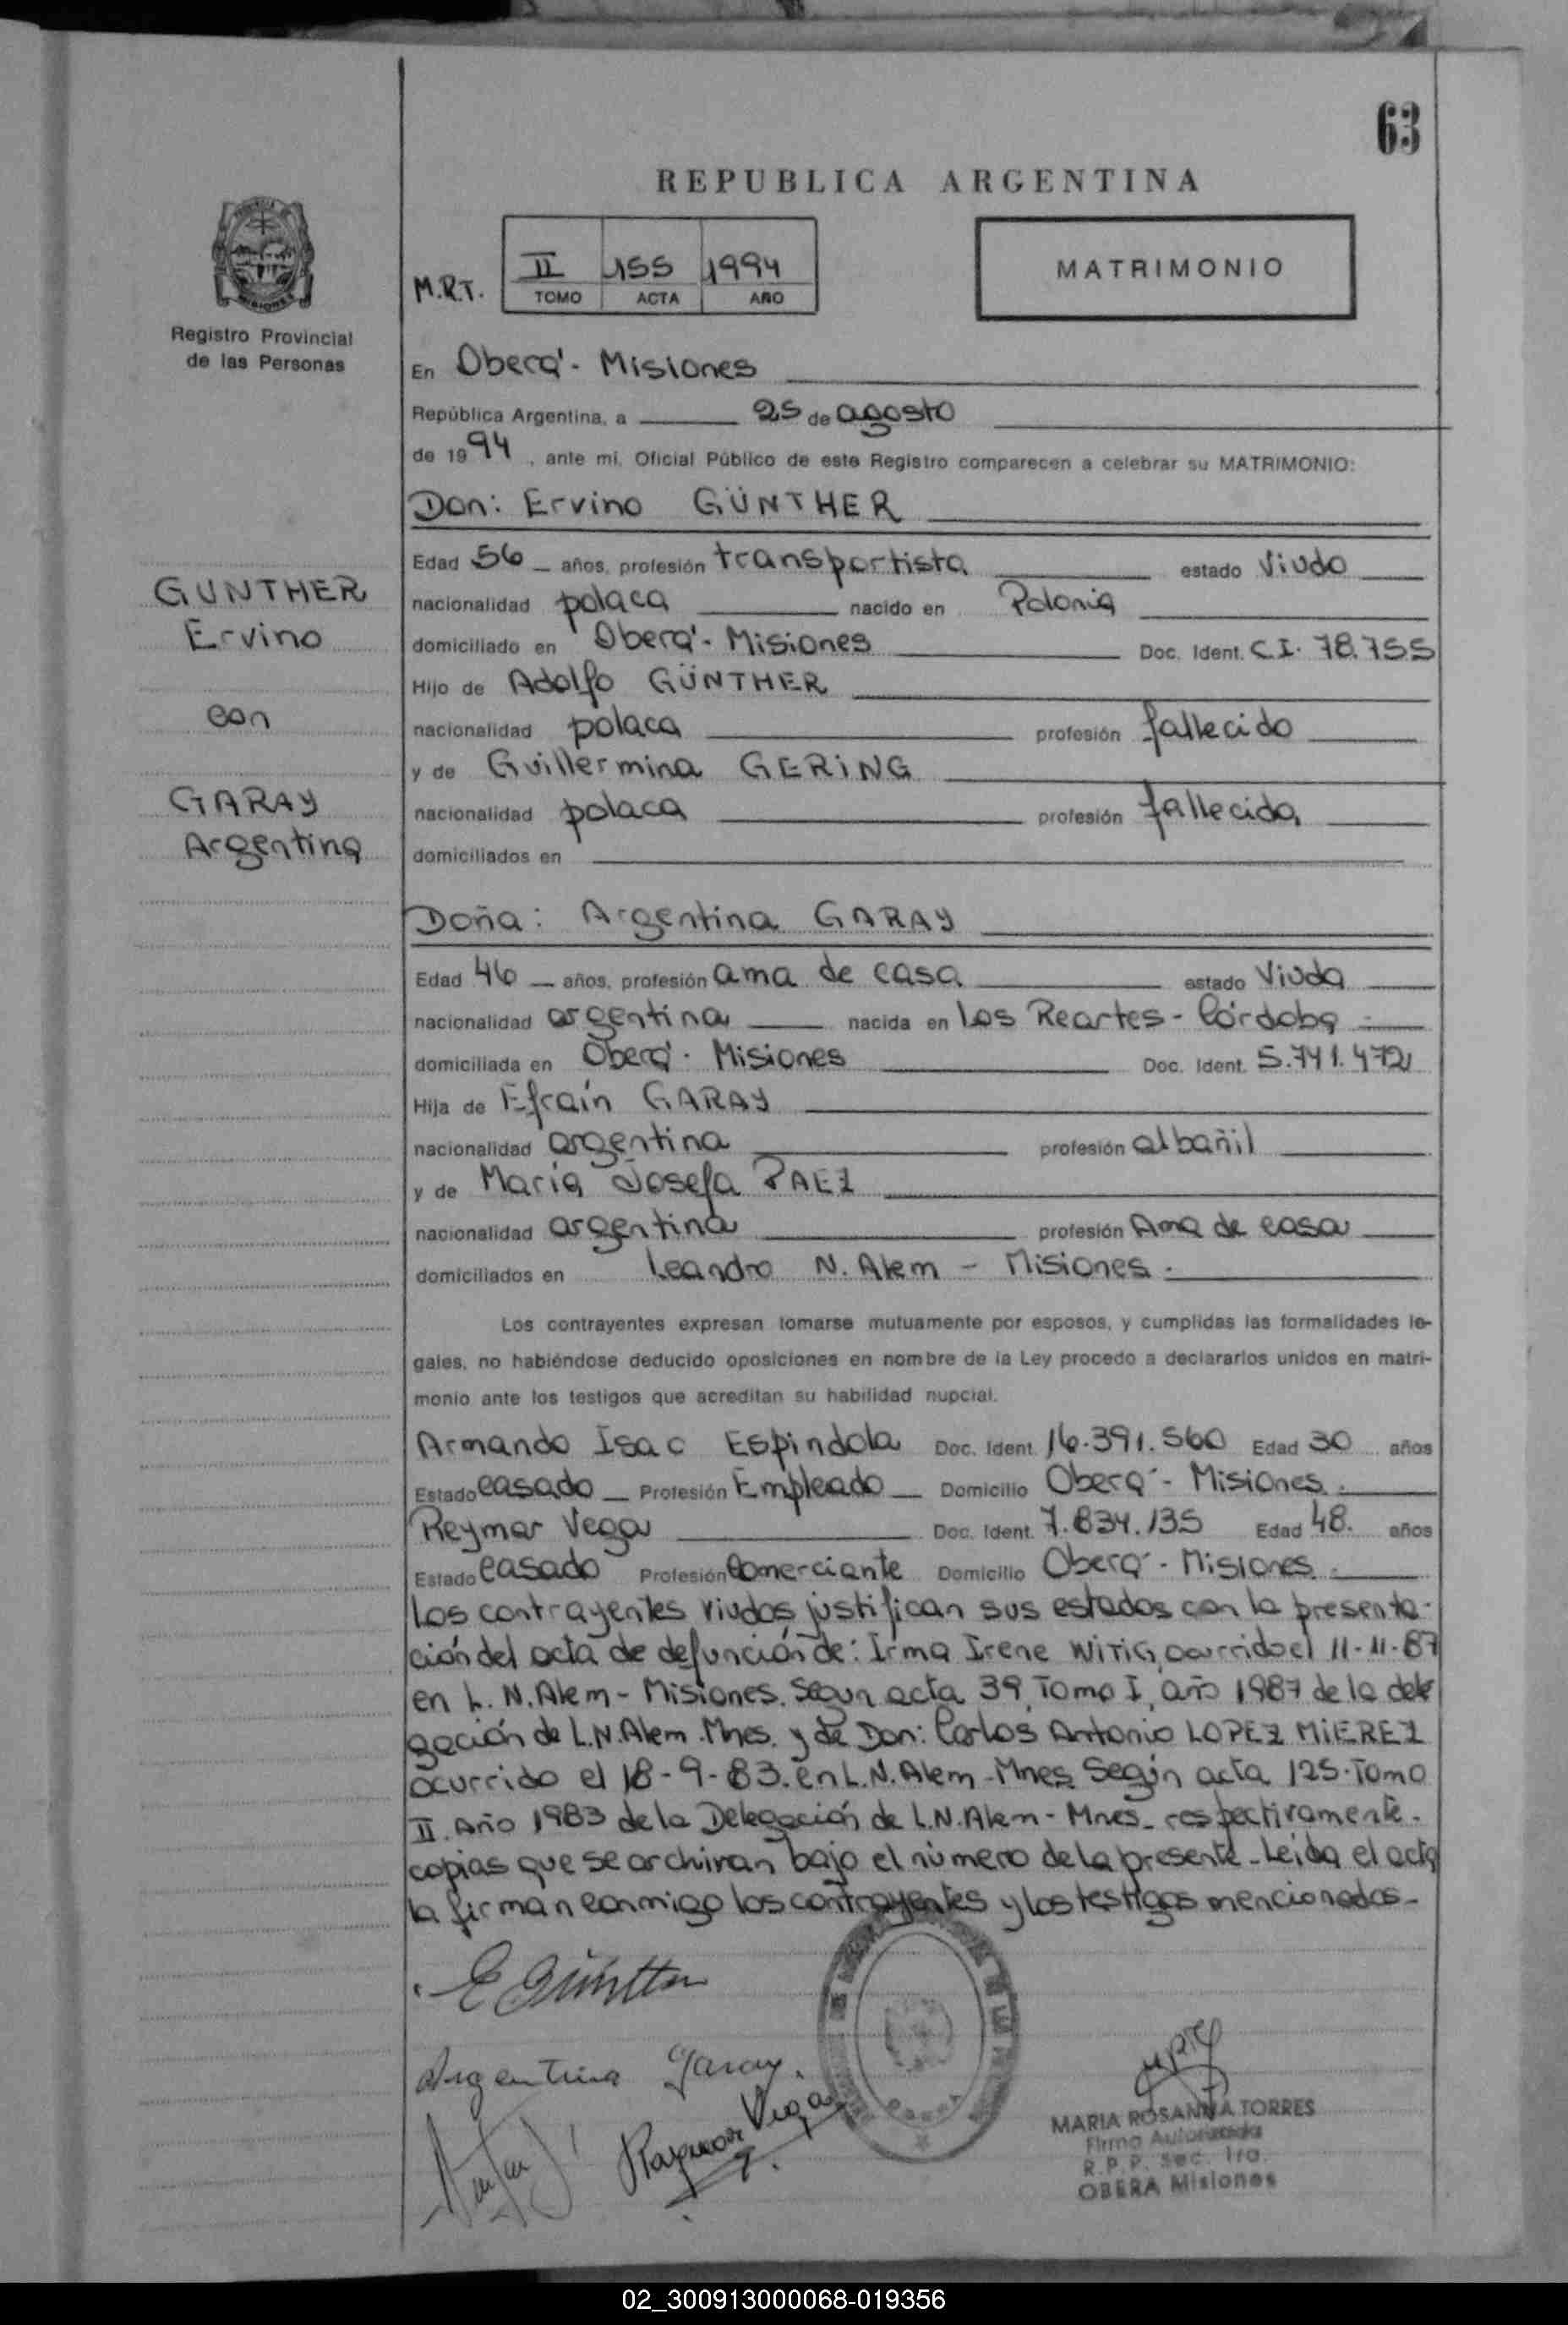 63
REPUBLICA ARGENTINA
MISIONES
Registro Provincial
de las Personas
M.R.T.
II 155 1994
TOMO ACTA AÑO
MATRIMONIO
En Oberá - Misiones
República Argentina, a 25 de agosto
de 1994, ante mí, Oficial Público de este Registro comparecen a celebrar su MATRIMONIO:
Don: Ervino GÜNTHER
Edad 56 años, profesión transportista estado viudo
GUNTHER
Ervino
con
GARAY
Argentina
nacionalidad polaca nacido en Polonia
domiciliado en Oberá - Misiones Doc. Ident. C.I. 78.755
Hijo de Adolfo GÜNTHER
nacionalidad polaca profesión fallecido
y de Guillermina GERING
nacionalidad polaca profesión fallecida
domiciliados en
Doña: Argentina GARAY
Edad 46 años, profesión ama de casa estado viuda
nacionalidad argentina nacida en Los Reartes - Córdoba
domiciliada en Oberá - Misiones Doc. Ident. 5.741.472
Hija de Efraín GARAY
nacionalidad argentina profesión albañil
y de María Josefa PAEZ
nacionalidad argentina profesión Ama de casa
domiciliados en Leandro N. Alem - Misiones.
Los contrayentes expresan tomarse mutuamente por esposos, y cumplidas las formalidades le-
gales, no habiéndose deducido oposiciones en nombre de la Ley procedo a declararlos unidos en matri-
monio ante los testigos que acreditan su habilidad nupcial.
Armando Isac Espindola Doc. Ident. 16.391.560 Edad 30 años
Estado casado Profesión Empleado Domicilio Oberá - Misiones.
Reymar Vega Doc. Ident. 7.834.135 Edad 48. años
Estado casado Profesión Comerciante Domicilio Oberá - Misiones.
Los contrayentes viudos justifican sus estados con la presenta-
ción del acta de defunción de: Irma Irene WITIG, ocurrido el 11-11-87
en L. N. Alem - Misiones. Segun acta 39, Tomo I, año 1987 de la dele
gación de L.N. Alem. Mnes. y de Don: Carlos Antonio LOPEZ MIEREZ
ocurrido el 18-9-83. en L.N. Alem - Mnes Según acta 125. Tomo
II. Año 1983 de la Delegación de L.N. Alem - Mnes. respectivamente.
copias que se archivan bajo el número de la presente - Leida el acta
la firman conmigo los contrayentes y los testigos mencionados -
E Günther
Argentina Garay.
Raymar Vega
MARIA ROSANNA TORRES
Firma Autorizada
R.P.P. Sec. 1ra.
OBERA Misiones
02_300913000068-019356